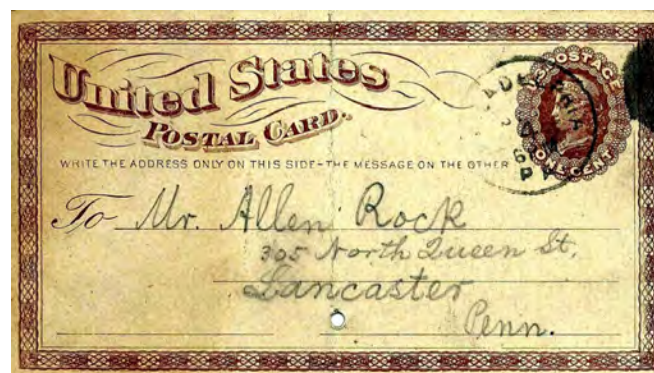 United States
POSTAL CARD.
U.S. POSTAGE
ONE CENT
WRITE THE ADDRESS ONLY ON THIS SIDE-THE MESSAGE ON THE OTHER
To Mr. Allen Rock
305 North Queen St.
Lancaster
Penn.